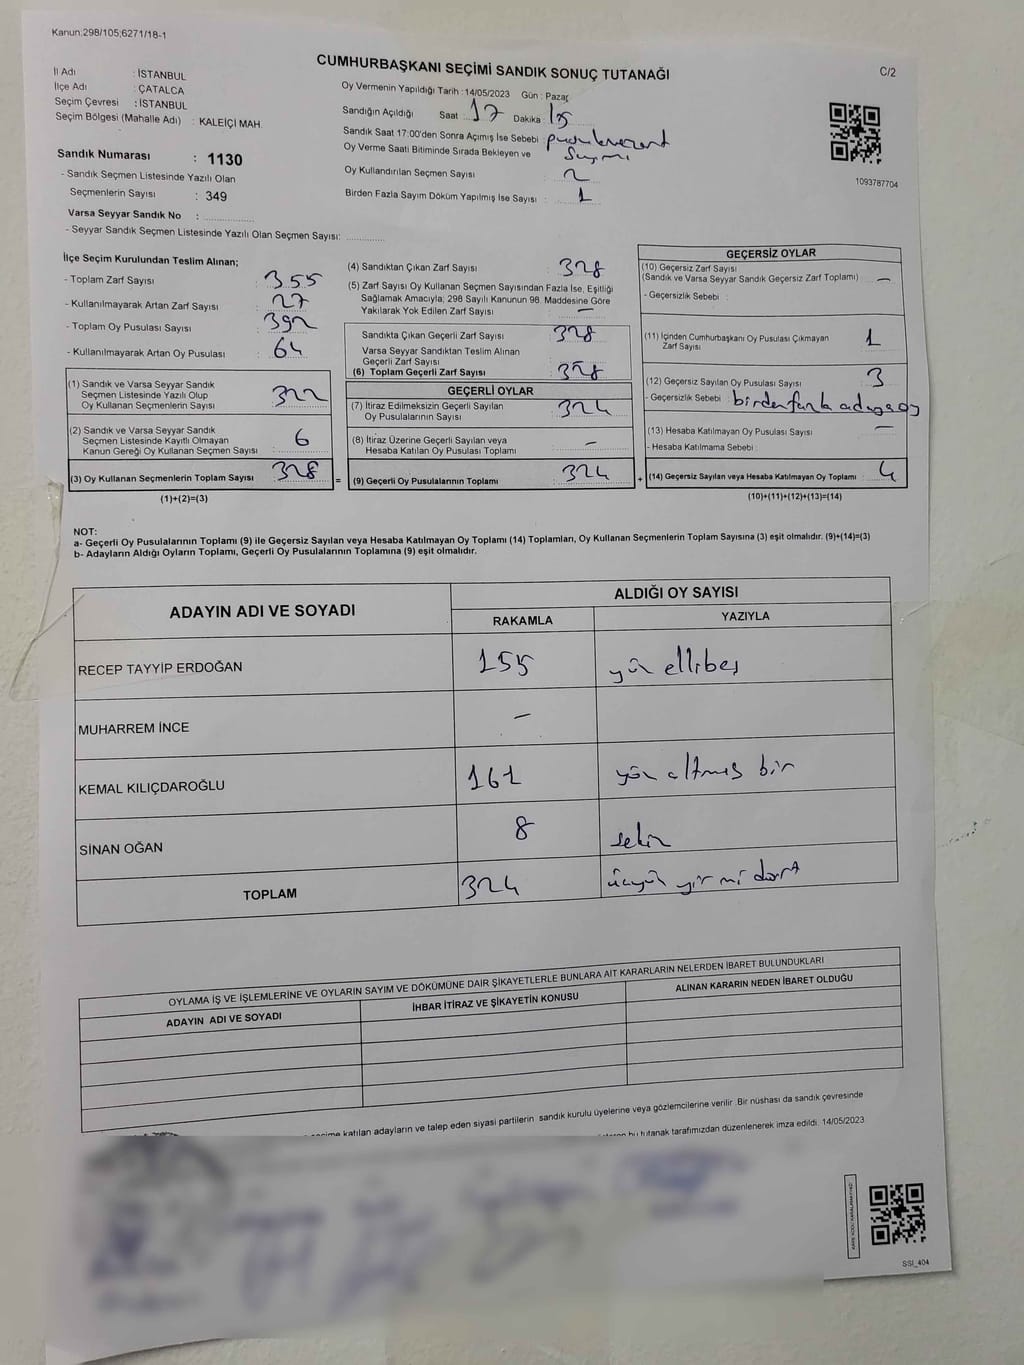 Kanun:298/105;6271/18-1
CUMHURBAŞKANI SEÇİMİ SANDIK SONUÇ TUTANAĞI
C/2
İl Adı : İSTANBUL
İlçe Adı : ÇATALCA
Seçim Çevresi : İSTANBUL
Seçim Bölgesi (Mahalle Adı) : KALEİÇİ MAH.
Sandık Numarası : 1130
- Sandık Seçmen Listesinde Yazılı Olan
Seçmenlerin Sayısı : 349
Varsa Seyyar Sandık No :
- Seyyar Sandık Seçmen Listesinde Yazılı Olan Seçmen Sayısı:
Oy Vermenin Yapıldığı Tarih : 14/05/2023 Gün : Pazar
Sandığın Açıldığı Saat : 17 Dakika : 15
Sandık Saat 17:00'den Sonra Açmış İse Sebebi :
Oy Verme Saati Bitiminde Sırada Bekleyen ve Sayımı
Oy Kullandırılan Seçmen Sayısı 2
Birden Fazla Sayım Döküm Yapılmış İse Sayısı : 1
1093787704
İlçe Seçim Kurulundan Teslim Alınan;
- Toplam Zarf Sayısı : 355
- Kullanılmayarak Artan Zarf Sayısı : 27
- Toplam Oy Pusulası Sayısı : 392
- Kullanılmayarak Artan Oy Pusulası : 64
(1) Sandık ve Varsa Seyyar Sandık
Seçmen Listesinde Yazılı Olup
Oy Kullanan Seçmenlerin Sayısı 322
(2) Sandık ve Varsa Seyyar Sandık
Seçmen Listesinde Kayıtlı Olmayan
Kanun Gereği Oy Kullanan Seçmen Sayısı 6
(3) Oy Kullanan Seçmenlerin Toplam Sayısı 328
(1)+(2)=(3)
(4) Sandıktan Çıkan Zarf Sayısı 328
(5) Zarf Sayısı Oy Kullanan Seçmen Sayısından Fazla İse, Eşitliği
Sağlamak Amacıyla; 298 Sayılı Kanunun 98. Maddesine Göre
Yakılarak Yok Edilen Zarf Sayısı : -
Sandıkta Çıkan Geçerli Zarf Sayısı 328
Varsa Seyyar Sandıktan Teslim Alınan
Geçerli Zarf Sayısı
(6) Toplam Geçerli Zarf Sayısı 328
GEÇERLİ OYLAR
(7) İtiraz Edilmeksizin Geçerli Sayılan
Oy Pusulalarının Sayısı 324
(8) İtiraz Üzerine Geçerli Sayılan veya
Hesaba Katılan Oy Pusulası Toplamı -
= (9) Geçerli Oy Pusulalarının Toplamı 324
GEÇERSİZ OYLAR
(10) Geçersiz Zarf Sayısı
(Sandık ve Varsa Seyyar Sandık Geçersiz Zarf Toplamı) -
- Geçersizlik Sebebi :
(11) İçinden Cumhurbaşkanı Oy Pusulası Çıkmayan
Zarf Sayısı 1
(12) Geçersiz Sayılan Oy Pusulası Sayısı 3
- Geçersizlik Sebebi birden fazla adaya oy
(13) Hesaba Katılmayan Oy Pusulası Sayısı -
- Hesaba Katılmama Sebebi
+ (14) Geçersiz Sayılan veya Hesaba Katılmayan Oy Toplamı : 4
(10)+(11)+(12)+(13)=(14)
NOT:
a- Geçerli Oy Pusulalarının Toplamı (9) ile Geçersiz Sayılan veya Hesaba Katılmayan Oy Toplamı (14) Toplamları, Oy Kullanan Seçmenlerin Toplam Sayısına (3) eşit olmalıdır. (9)+(14)=(3)
b- Adayların Aldığı Oyların Toplamı, Geçerli Oy Pusulalarının Toplamına (9) eşit olmalıdır.
ADAYIN ADI VE SOYADI
ALDIĞI OY SAYISI
RAKAMLA YAZIYLA
RECEP TAYYİP ERDOĞAN 155 yüz ellibeş
MUHARREM İNCE -
KEMAL KILIÇDAROĞLU 161 yüz altmış bir
SİNAN OĞAN 8 sekiz
TOPLAM 324 üçyüz yirmi dört
OYLAMA İŞ VE İŞLEMLERİNE VE OYLARIN SAYIM VE DÖKÜMÜNE DAİR ŞİKAYETLERLE BUNLARA AİT KARARLARIN NELERDEN İBARET BULUNDUKLARI
ADAYIN ADI VE SOYADI İHBAR İTİRAZ VE ŞİKAYETİN KONUSU ALINAN KARARIN NEDEN İBARET OLDUĞU
katılan adayların ve talep eden siyasi partilerin sandık kurulu üyelerine veya gözlemcilerine verilir. Bir nüshası da sandık çevresinde
bu tutanak tarafımızdan düzenlenerek imza edildi. 14/05/2023
SSI_404